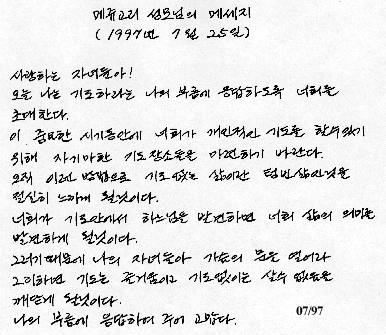 메쥬고리 성모님의 메세지
(1997년 7월 25일)
사랑하는 자녀들아!
오늘 나는 기도하라는 나의 부름에 응답하도록 너희를
초대한다.
이 중요한 시기동안에 너희가 개인적인 기도를 할수있기
위해 자기마한 기도장소들을 마련하기 바란다.
오직 이런 방법으로 기도없는 삶이란 텅빈삶인것을
절실히 느끼게 될것이다.
너희가 기도안에서 하느님을 발견하면 너희 삶의 의미를
발견하게 될것이다.
그러기때문에 나의 자녀들아 가슴의 문을 열어라
그리하면 기도는 즐거움이고 기도없이는 살수 없음을
깨닫게 될것이다.
나의 부름에 응답하여 주어 고맙다.
07/97